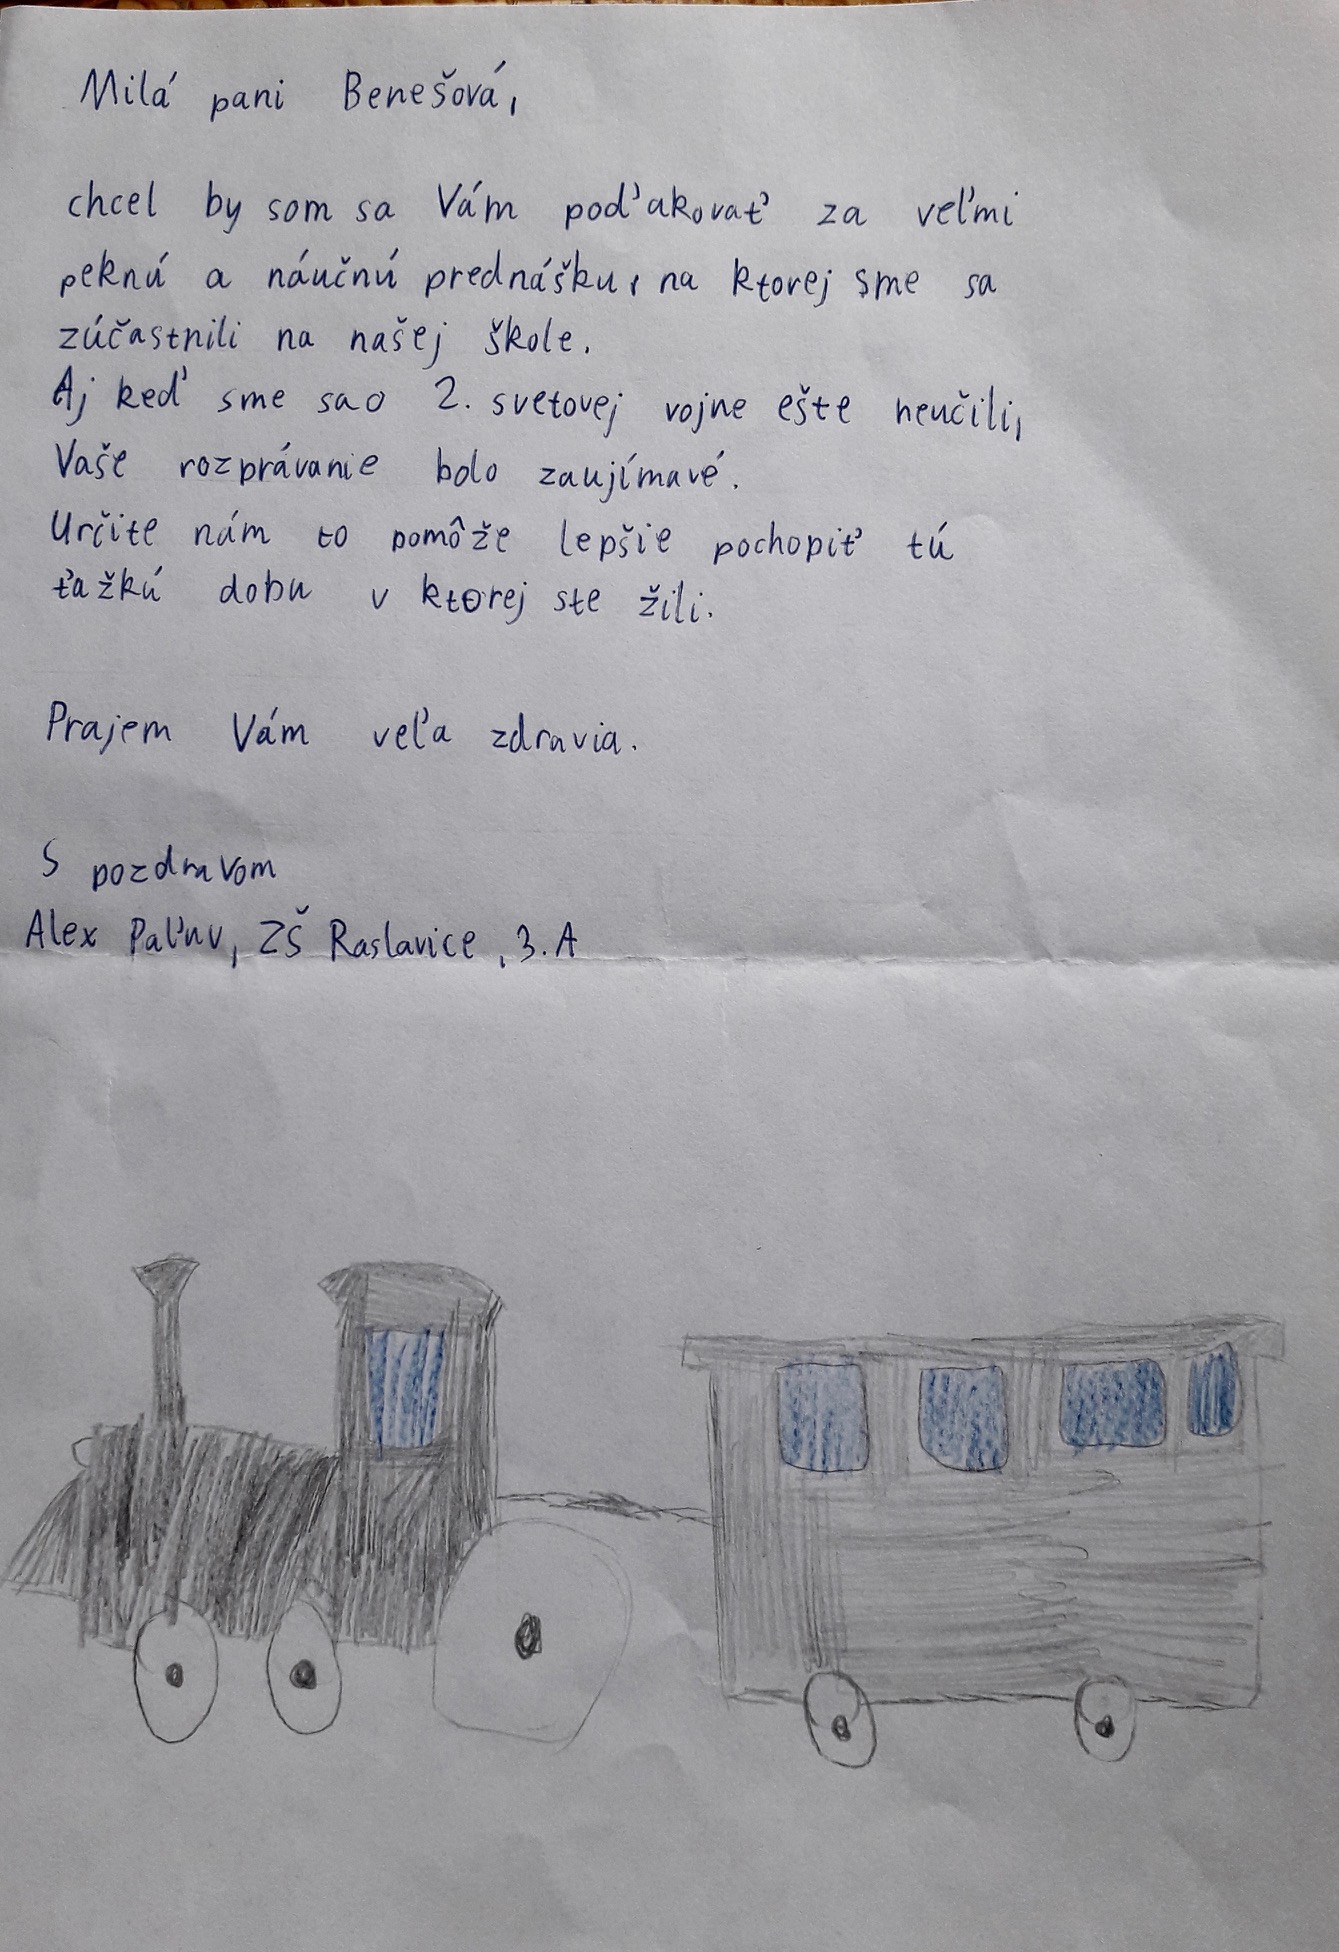 Milá pani Benešová,
chcel by som sa Vám poďakovať za veľmi
peknú a náučnú prednášku, na ktorej sme sa
zúčastnili na našej škole.
Aj keď sme sa o 2. svetovej vojne ešte neučili,
Vaše rozprávanie bolo zaujímavé.
Určite nám to pomôže lepšie pochopiť tú
ťažkú dobu v ktorej ste žili.
Prajem Vám veľa zdravia.
S pozdravom
Alex , ZŠ Raslavice, 3.A